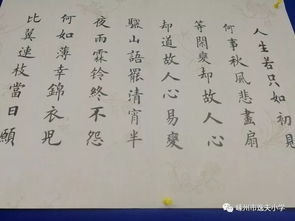 人生若只如初見
何事秋風悲畫扇
等閑變却故人心
却道故人心易變
驪山語罷清宵半
夜雨霖铃終不怨
何如薄幸錦衣児
比翼連枝當日願
嵊州市逸夫小学